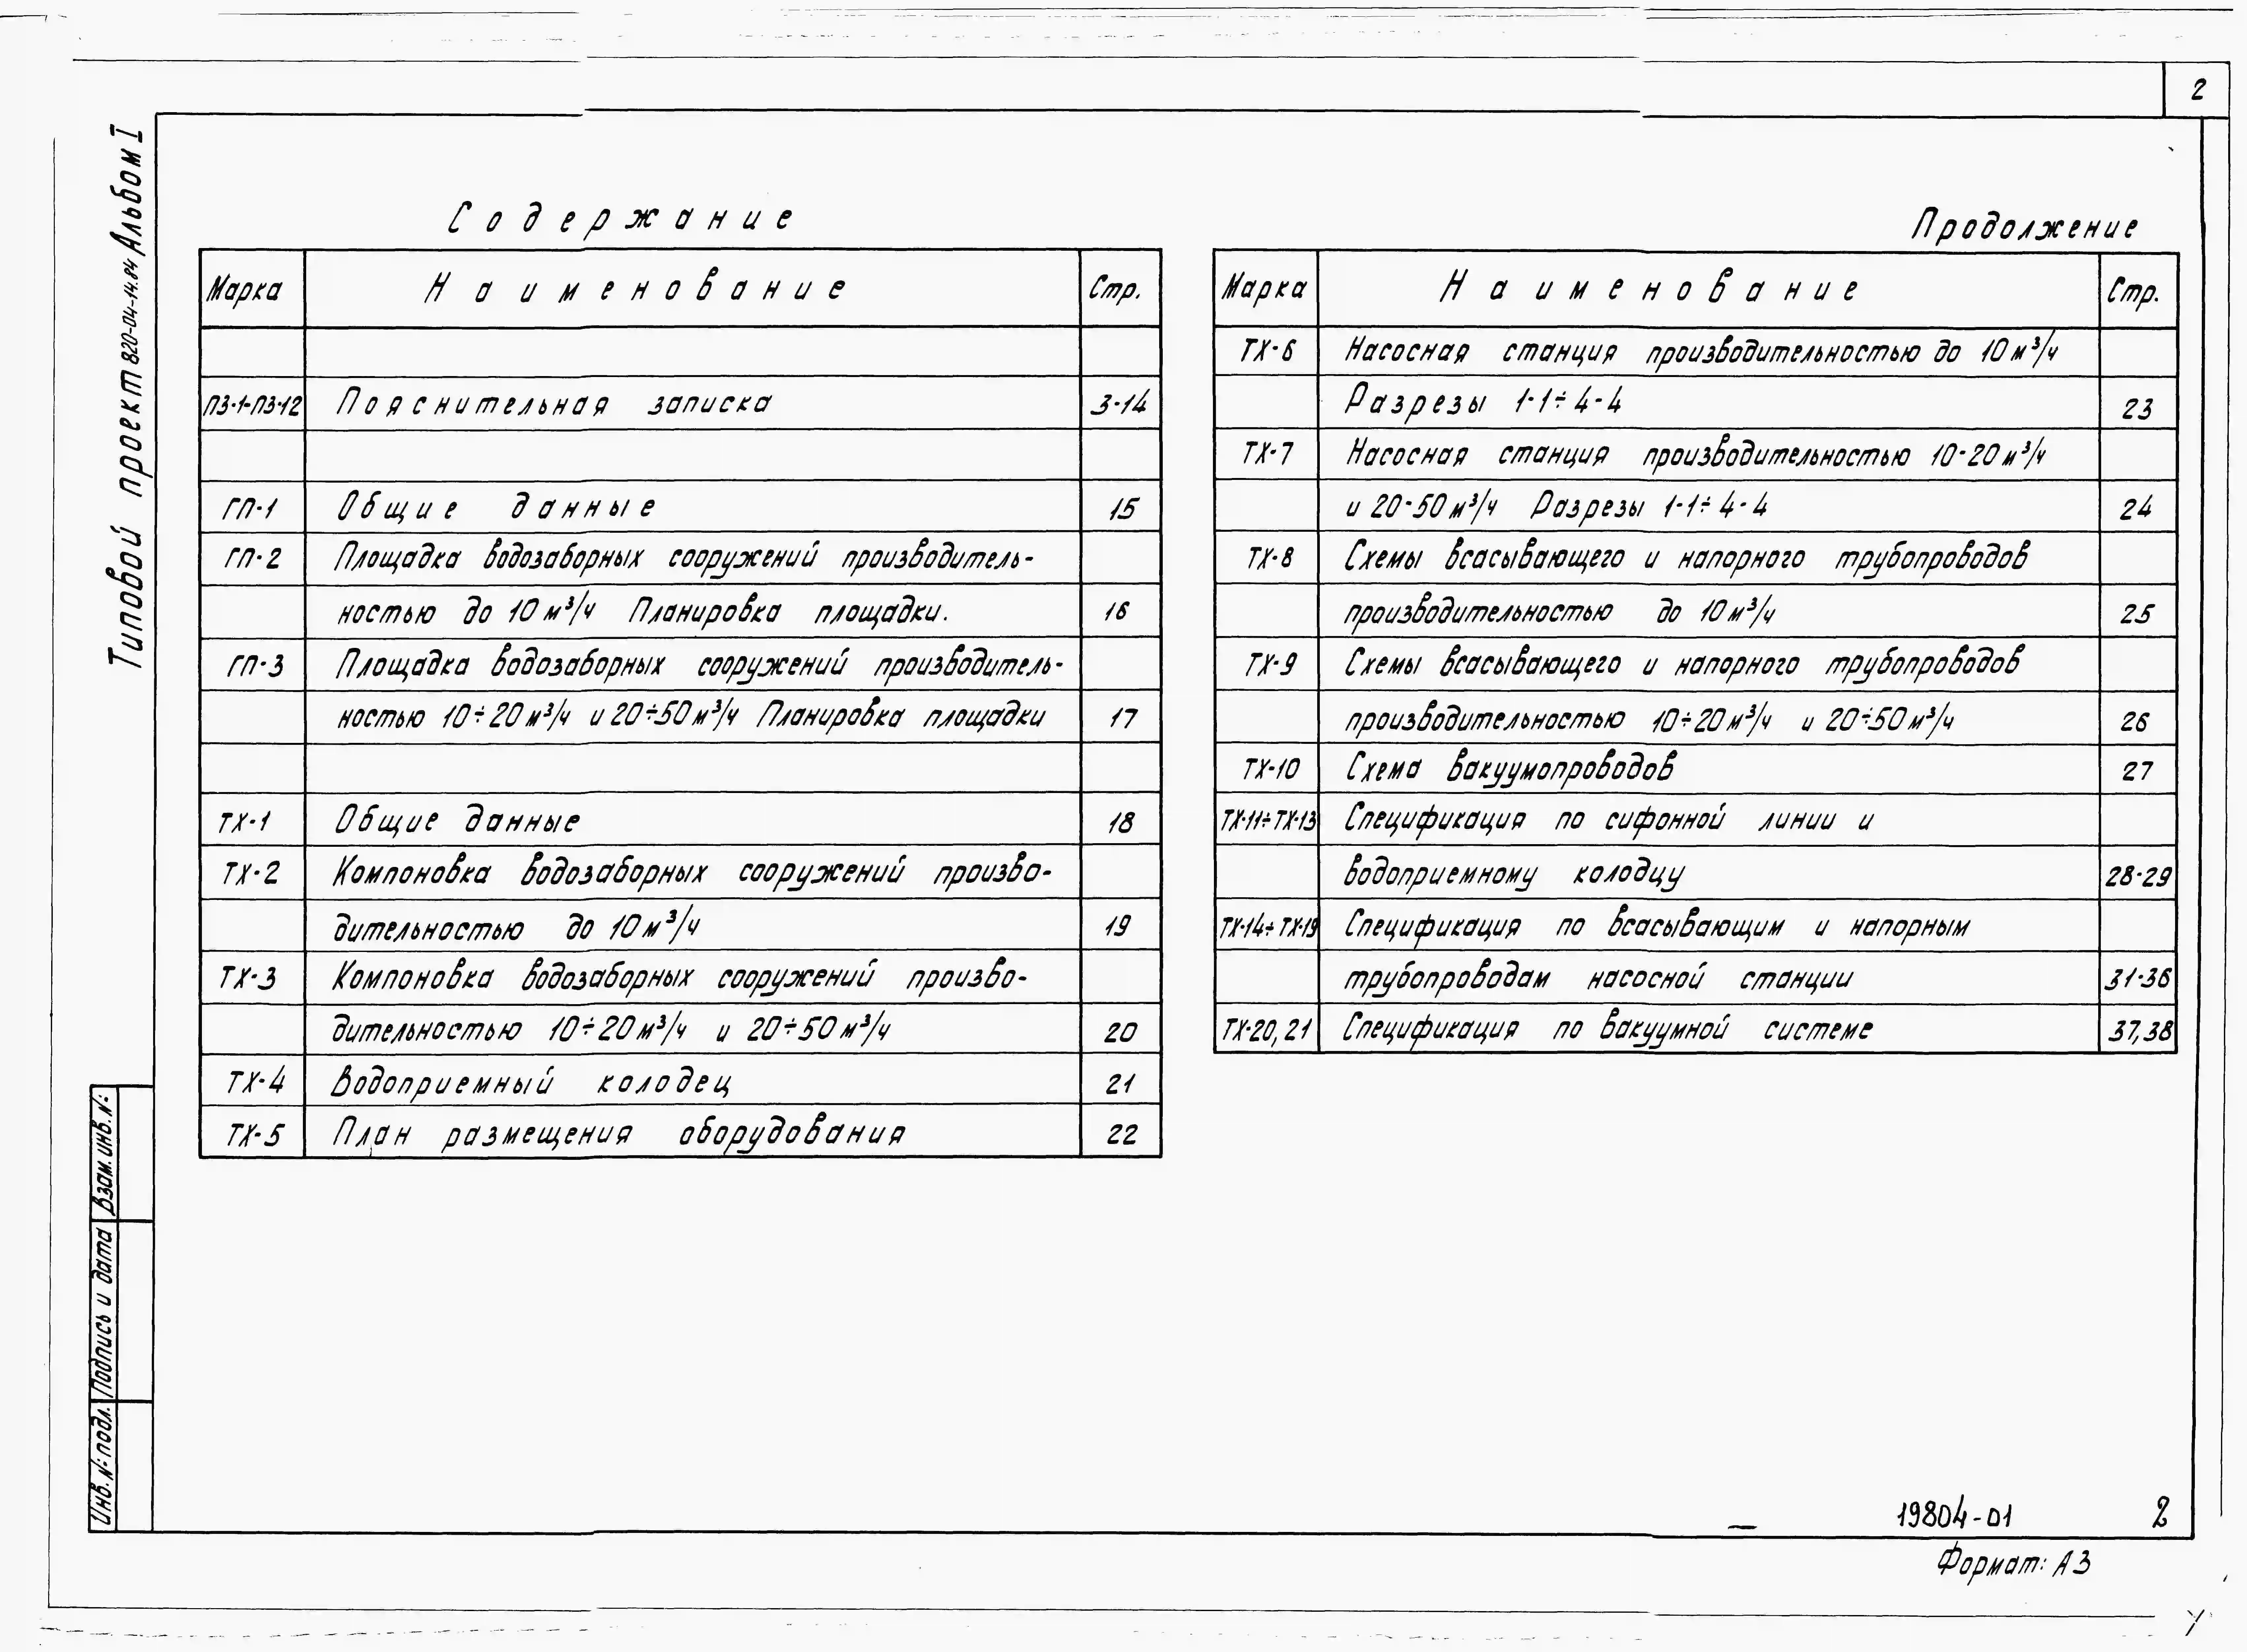 2
Типовой проект 820-04-14.84 Альбом I
Содержание
Марка Наименование Стр.
ПЗ-1-ПЗ-12 Пояснительная записка 3-14
ГП-1 Общие данные 15
ГП-2 Площадка водозаборных сооружений производитель-
ностью до 10 м³/ч Планировка площадки. 16
ГП-3 Площадка водозаборных сооружений производитель-
ностью 10÷20 м³/ч и 20÷50 м³/ч Планировка площадки 17
ТХ-1 Общие данные 18
ТХ-2 Компоновка водозаборных сооружений произво-
дительностью до 10 м³/ч 19
ТХ-3 Компоновка водозаборных сооружений произво-
дительностью 10÷20 м³/ч и 20÷50 м³/ч 20
ТХ-4 Водоприемный колодец 21
ТХ-5 План размещения оборудования 22
Продолжение
Марка Наименование Стр.
ТХ-6 Насосная станция производительностью до 10 м³/ч
Разрезы 1-1÷4-4 23
ТХ-7 Насосная станция производительностью 10-20 м³/ч
и 20-50 м³/ч Разрезы 1-1÷4-4 24
ТХ-8 Схемы всасывающего и напорного трубопроводов
производительностью до 10 м³/ч 25
ТХ-9 Схемы всасывающего и напорного трубопроводов
производительностью 10÷20 м³/ч и 20÷50 м³/ч 26
ТХ-10 Схема вакуумопроводов 27
ТХ-11÷ТХ-13 Спецификация по сифонной линии и
водоприемному колодцу 28-29
ТХ-14÷ТХ-19 Спецификация по всасывающим и напорным
трубопроводам насосной станции 31-36
ТХ-20,21 Спецификация по вакуумной системе 37,38
Взам. инв. №:
Подпись и дата
Инв. №: подл.
19804-01 2
Формат: А3